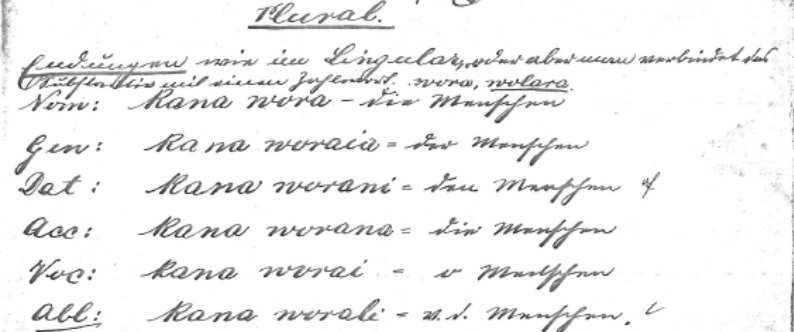 Plural.
Endungen wie im Singular, oder aber man verbindet das
Substantiv mit einem Zahlwort. wora, wolara.
Nom: Kana wora - die Menschen
Gen: Kana woraia = der Menschen
Dat: Kana worani = den Menschen
Acc: Kana worana = die Menschen
Voc: Kana worai - o Menschen
Abl: Kana worali - v. d. Menschen.